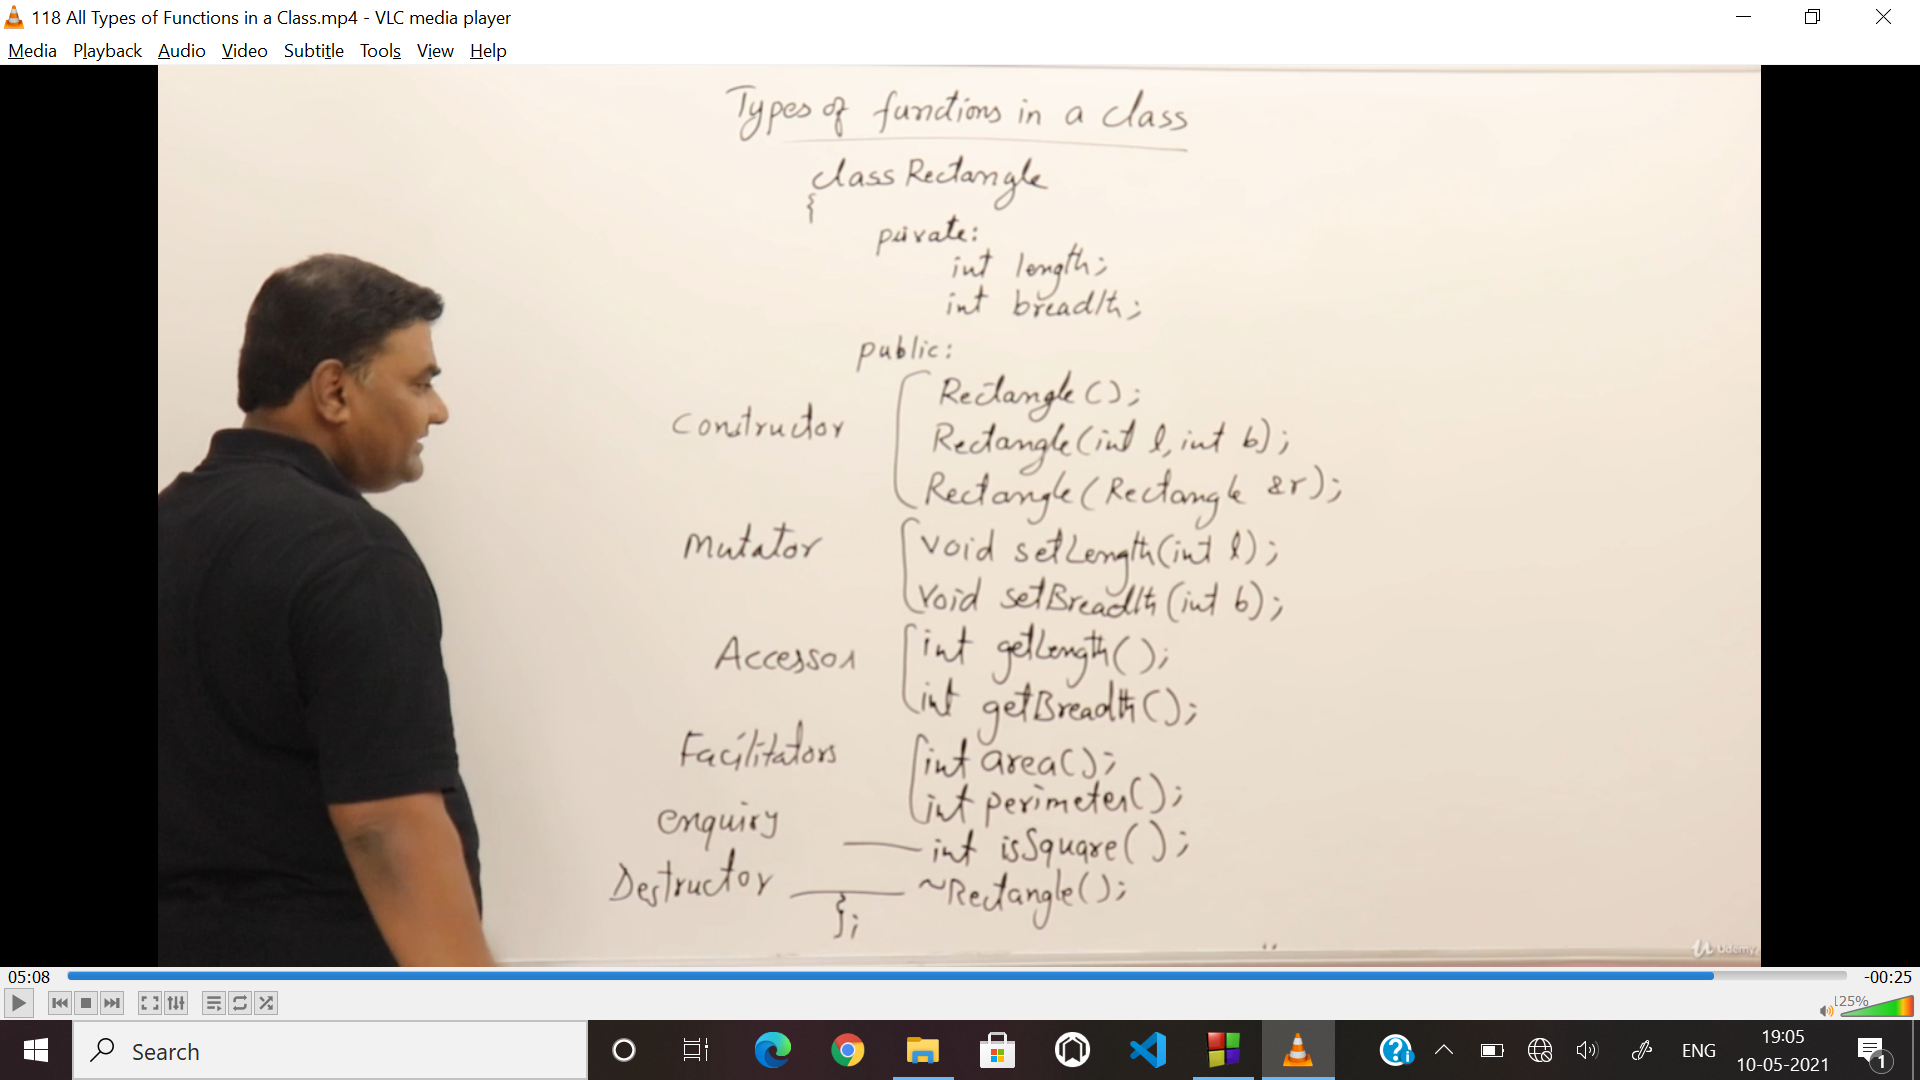 118 All Types of Functions in a Class.mp4 - VLC media player
Media Playback Audio Video Subtitle Tools View Help
Types of functions in a class
class Rectangle
{
private:
int length;
int breadth;
public:
Constructor Rectangle();
Rectangle(int l, int b);
Rectangle(Rectangle &r);
Mutator void setLength(int l);
void setBreadth(int b);
Accessor int getLength();
int getBreadth();
Facilitators int area();
int perimeter();
enquiry int isSquare();
Destructor ~Rectangle();
};
Udemy
05:08 -00:25
125%
Search
ENG
19:05
10-05-2021
1